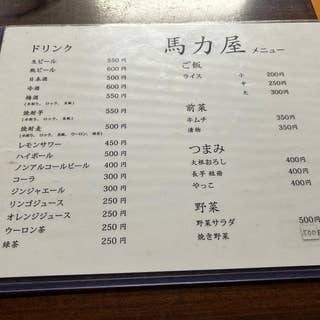 馬力屋 メニュー
ドリンク
生ビール 550円
瓶ビール 600円
日本酒 500円
冷酒 600円
梅酒 550円
(水割り、ロック、炭酸)
焼酎芋 500円
(水割り、ロック、炭酸)
焼酎麦 500円
(水割り、ロック、炭酸、ウーロン、緑茶)
レモンサワー 450円
ハイボール 500円
ノンアルコールビール 400円
コーラ 300円
ジンジャエール 300円
リンゴジュース 250円
オレンジジュース 250円
ウーロン茶 250円
緑茶 250円
ご飯
ライス 小 200円
中 250円
大 300円
前菜
キムチ 350円
漬物 350円
つまみ
大根おろし 400円
長芋 短冊 400円
やっこ 400円
野菜
野菜サラダ 500円
焼き野菜 500円